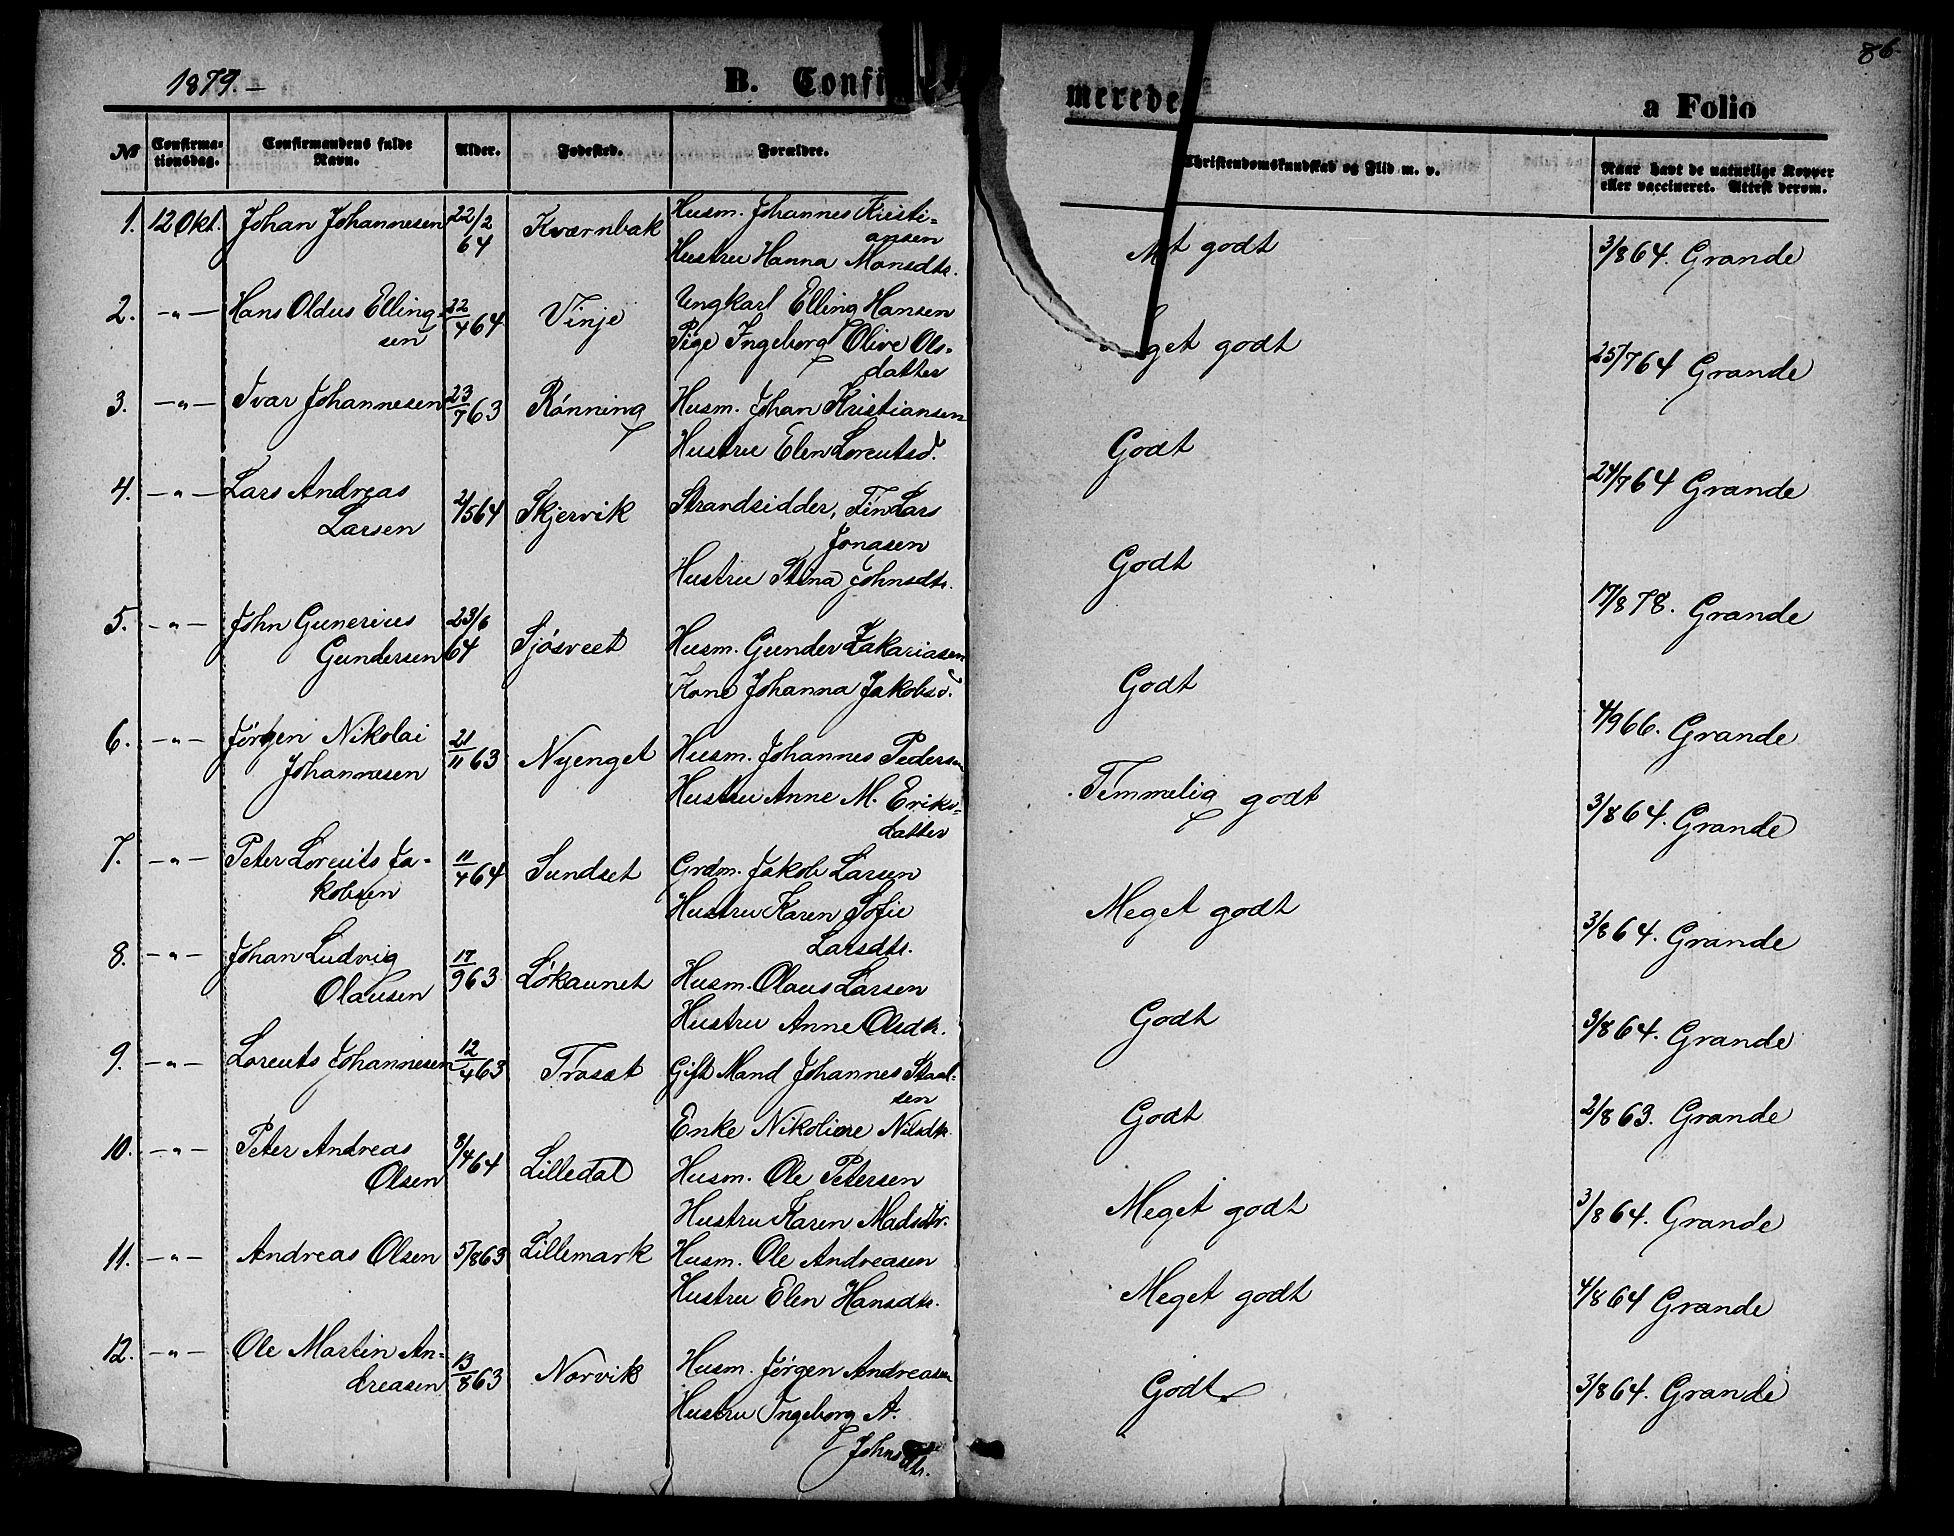 1879.
B. Confi
merede
a Folio
86
№
Confirma-
tionsdag.
Confirmandens fulde
Navn.
Alder.
Fødested.
Forældre.
Christendomskundskab og Flid m. v.
Naar havt de naturlige Kopper
eller vaccineret. Attest derom.
1. 12 Okt. Johan Johannesen 22/2 64 Kvernbak Husm. Johannes Kristi-
ansen
Hustru Hanna Monsdtr.
godt
3/8 64. Grande
2. -"- Hans Oldus Elling-
sen
22/4 64 Vinje Ungkarl Elling Hansen
Pige Ingeborg Olive Ols-
datter
get godt
25/7 64 Grande
3. -"- Ivar Johannesen 23/7 63 Rønning Husm. Johan Kristiansen
Hustru Elen Lorentsd.
Godt
24/7 64 Grande
4. -"- Lars Andreas
Larsen
2/5 64 Skjervik Strandsidder, Fin Lars
Jonasen
Hustru Stina Johnsdtr.
Godt
17/8 78. Grande
5. -"- John Gunerius
Gundersen
23/6 64 Sjøsveet Husm. Gunder Zakariasen
Kone Johanna Jakobsd.
Godt
4/9 66. Grande
6. -"- Jørgen Nikolai
Johannesen
21/11 63 Nyenget Husm. Johannes Pedersen
Hustru Anne M. Eriks-
datter
Temmelig godt
3/8 64. Grande
7. -"- Peter Lorents Ja-
kobsen
11/4 64 Sundset Grdm. Jakob Larsen
Hustru Karen Sofie
Larsdtr.
Meget godt
3/8 64. Grande
8. -"- Johan Ludvig
Olausen
17/9 63 Løkaunet Husm. Olaus Larsen
Hustru Anne Olsdtr.
Godt
3/8 64. Grande
9. -"- Lorents Johannesen 12/4 63 Trasat Gift Mand Johannes Staal-
sen
Enke Nikoline Nilsdtr.
Godt
2/8 63. Grande
10. -"- Peter Andreas
Olsen
3/4 64 Lilledal Husm. Ole Petersen
Hustru Karen Madsdtr.
Meget godt
3/8 64. Grande
11. -"- Andreas Olsen 5/8 63 Lillemark Husm. Ole Andreasen
Hustru Elen Hansdtr.
Meget godt
4/8 64 Grande
12. -"- Ole Martin An-
dreasen
13/8 63 Norvik Husm. Jørgen Andreasen
Hustru Ingeborg A.
Johnsdtr.
Godt
3/8 64. Grande